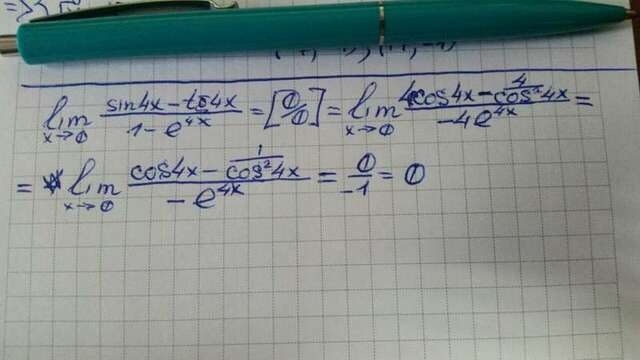 lim x→0 (sin4x - tg4x)/(1 - e^4x) = [0/0] = lim x→0 (4cos4x - 4/cos²4x)/(-4e^4x) =
= lim x→0 (cos4x - 1/cos²4x)/(-e^4x) = 0/-1 = 0